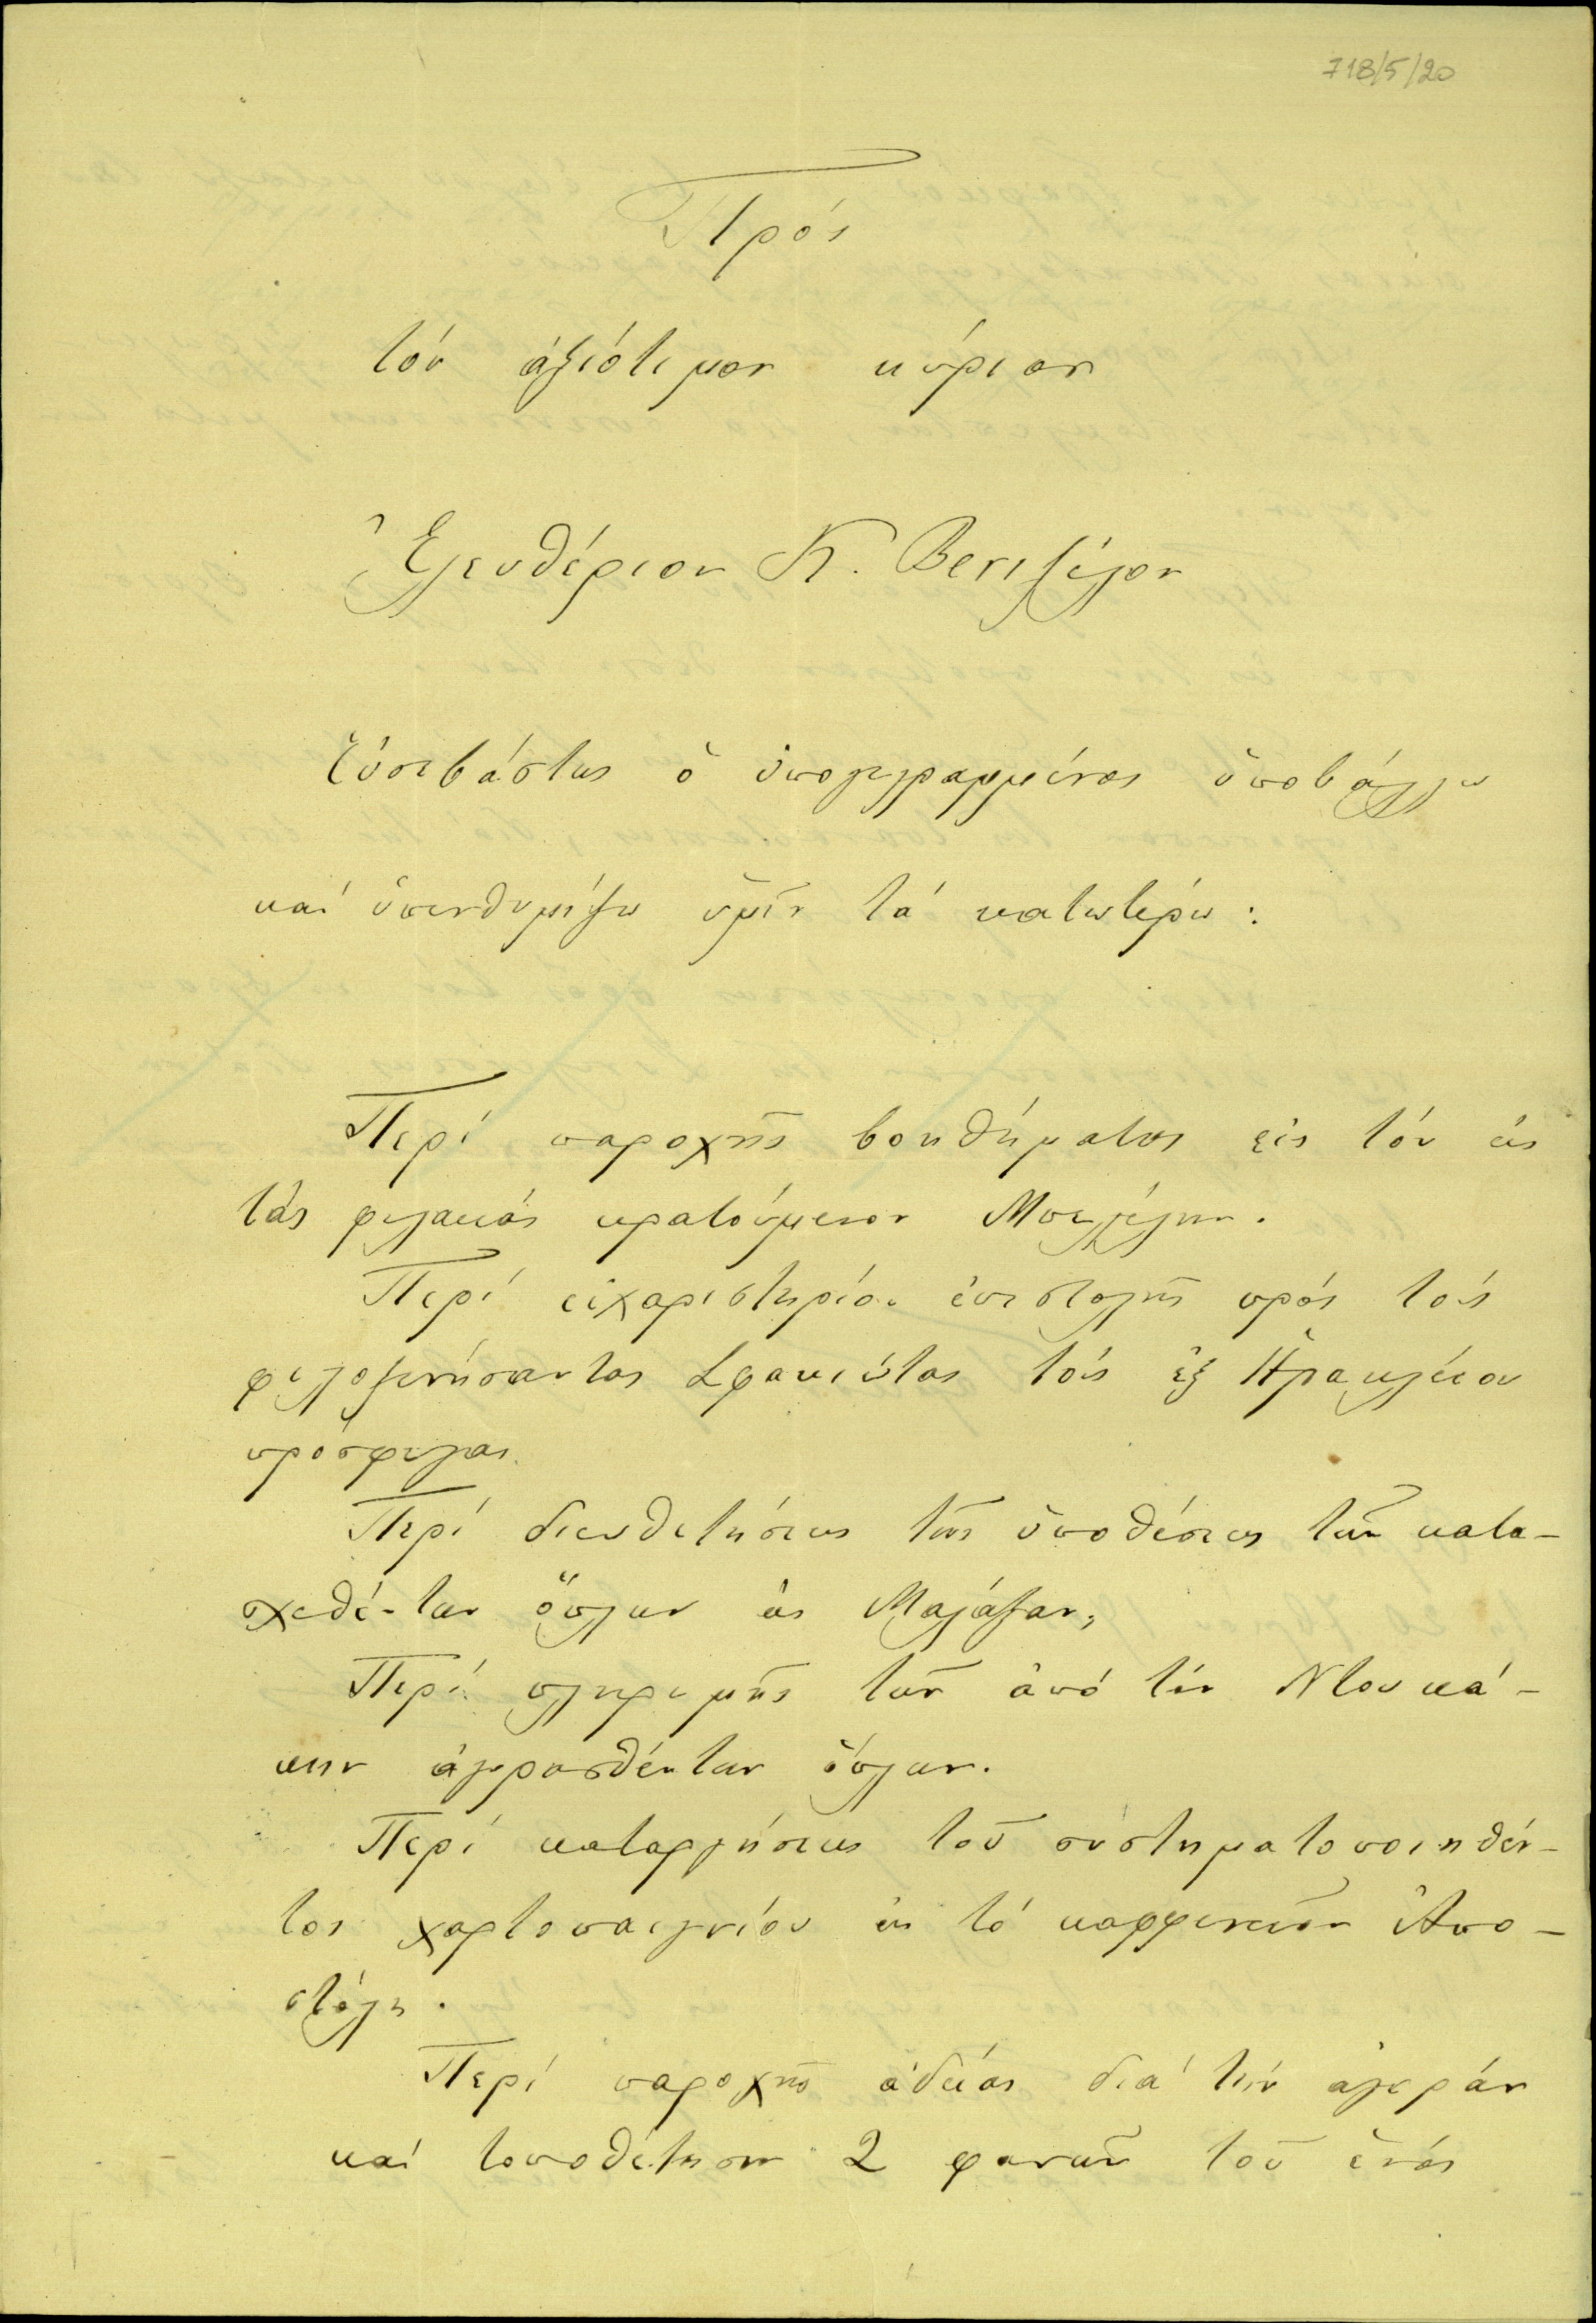 718/5/20
Πρός
τόν ἀξιότιμον κύριον
Ἐλευθέριον Κ. Βενιζέλον
Εὐσεβάστως ὁ ὑπογεγραμμένος ὑποβάλλω
καί ὑπενθυμίζω ὑμῖν τά κατωτέρω :
Περί παροχῆς βοηθήματος εἰς τόν εἰς
τάς φυλακάς κρατούμενον
Περί εὐχαριστηρίου ἐπιστολῆς πρός τούς
φιλοξενήσαντας Σφακιώτας τούς ἐξ Ἡρακλείου
πρόσφυγας.
Περί διευθετήσεως τῆς ὑποθέσεως τῶν κατα-
σχεθέντων ὅπλων εἰς Μαλάξαν,
Περί πληρωμῆς τῶν ἀπό τόν Ντουκά-
κην ἀγορασθέντων ὅπλων.
Περί καταργήσεως τοῦ συστηματοποιηθέν-
τος χαρτοπαιγνίου εἰς τό καφφενεῖον Ἀπο-
στόλη.
Περί παροχῆς ἀδείας διά τήν ἀγοράν
καί τοποθέτησιν 2 φανῶν τοῦ ἑνός